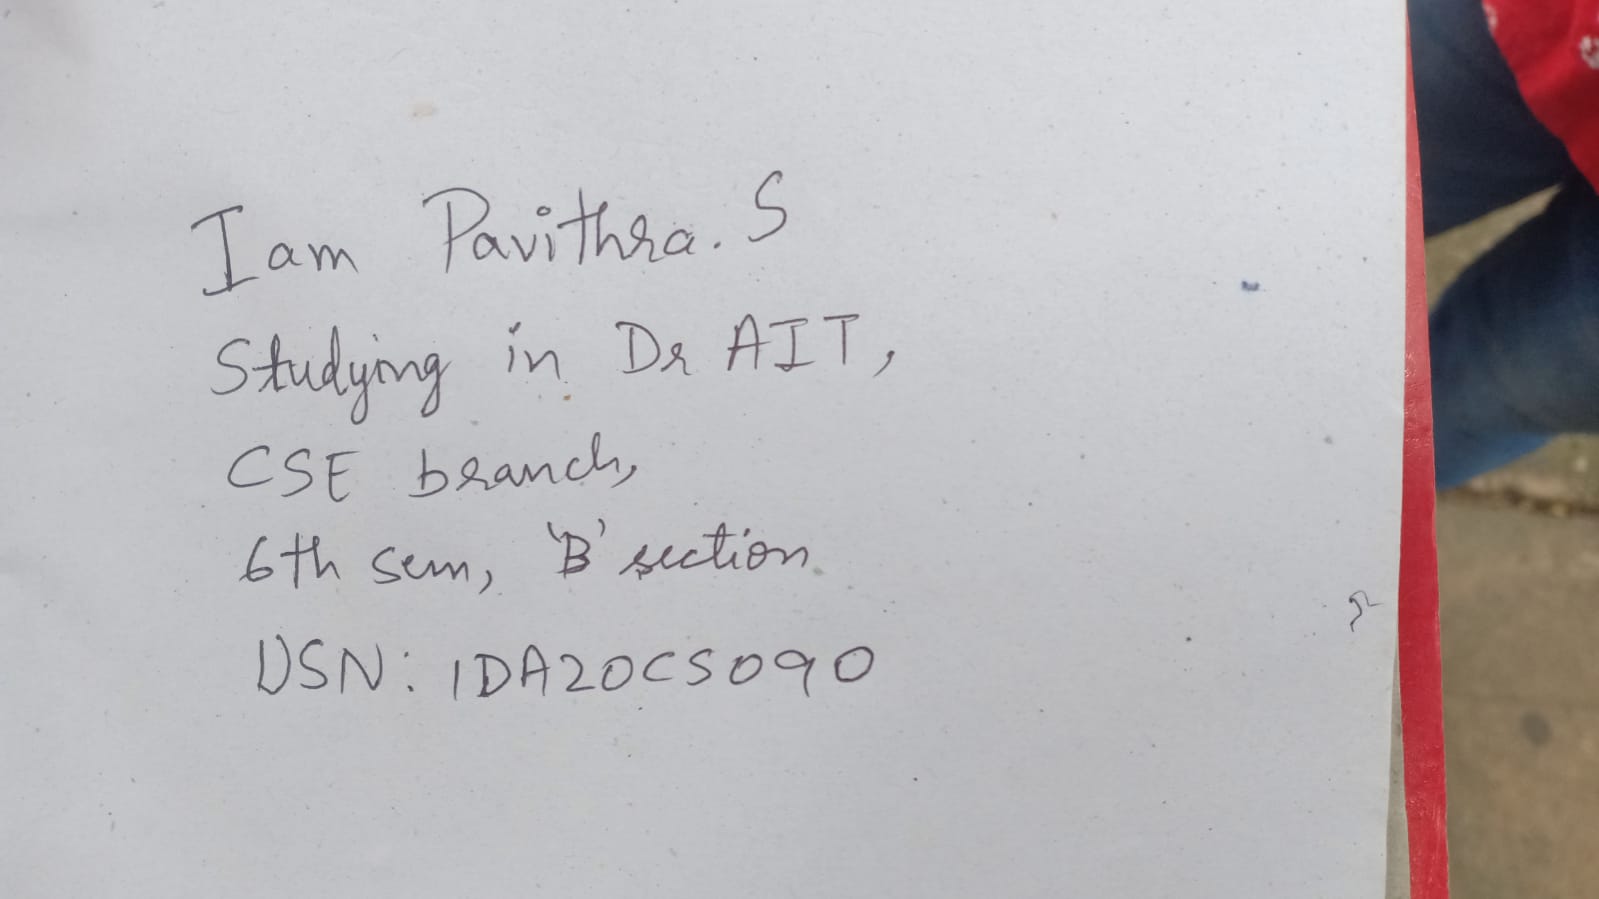 I am Pavithra. S
Studying in Dr AIT,
CSE branch,
6th sem, 'B' section
USN: 1DA20CS090